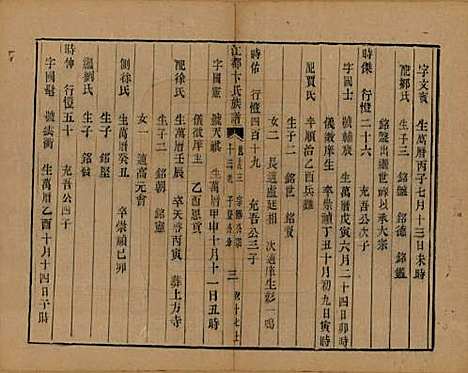 字文賓　生萬曆丙子七月十三日未時
配鄒氏　生子三　銘盤　銘德　銘鑑
銘盤出繼世師以承大宗
時傑　行愷二十六　充吾公次子
字國士　號輔　生萬曆戊寅六月二十四日卯時
儀徵庠生　卒崇禎丁丑十月初九日寅時
配賈氏　辛順治乙酉兵難
生子二　銘世　銘
女二　長適盧廷相　次適庠生彭一鳴
時佑　行愷四百十九　充吾公三子
江都卞氏族譜　三
字國憲　號天祺　生萬曆甲申十月十一日丑時
儀徵庠生　乙酉恩貢
配徐氏　生萬曆壬辰　卒天啓丙寅　葬上方寺
生子二　銘朝　銘憲
女一　適高元會
側徐氏　生萬曆癸丑　卒崇禎己卯
繼劉氏　生子　銘
時伸　行愷五十　充吾公四子
字國　號　衡　生萬曆乙酉十月十四日子時